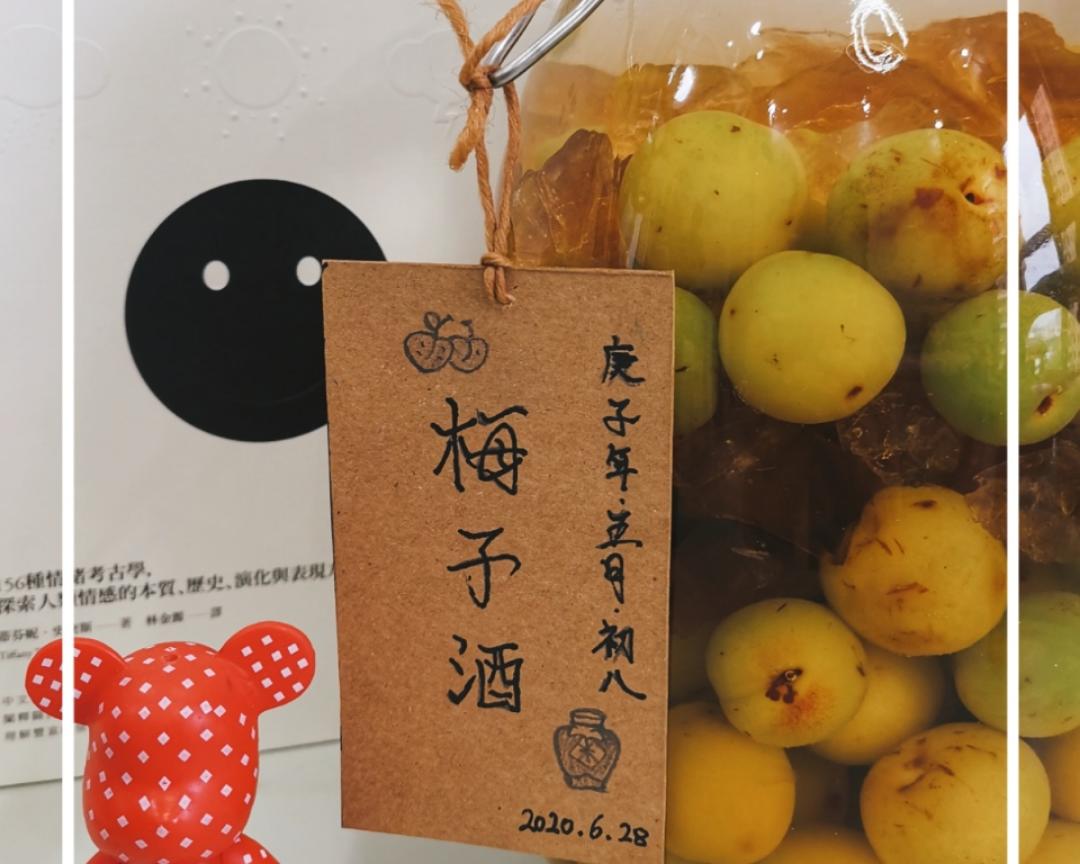 庚子年·五月·初八
梅子酒
2020.6.28
156種情緒考古學,
探索人類情感的本質、歷史、演化與表現
著 林金源 譯
Tiffany
中文